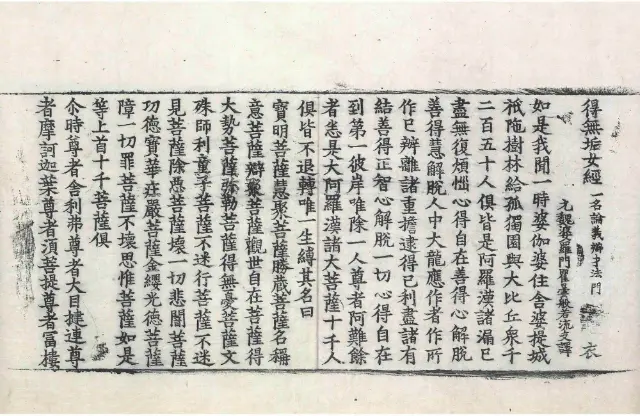 得無垢女經 一名論義辯才法門 衣
元魏婆羅門瞿曇般若流支譯
如是我聞一時婆伽婆住舍婆提城
祇陁樹林給孤獨園與大比丘衆千
二百五十人俱皆是阿羅漢諸漏已
盡無復煩惱心得自在善得心解脫
善得慧解脫人中大龍應作者作所
作已辦離諸重擔逮得己利盡諸有
結善得正智心解脫一切心得自在
到第一彼岸唯除一人尊者阿難餘
者悉是大阿羅漢諸大菩薩十千人
俱皆不退轉唯一生縛其名曰
寶明菩薩慧聚菩薩勝藏菩薩名稱
意菩薩辯聚菩薩觀世自在菩薩得
大勢菩薩弥勒菩薩得無憂菩薩文
殊師利童子菩薩不迷行菩薩不迷
見菩薩除惡菩薩壞一切悲闇菩薩
功德寶華莊嚴菩薩金纓光德菩薩
障一切罪菩薩不壞思惟菩薩如是
等上首十千菩薩俱
尒時尊者舍利弗尊者大目揵連尊
者摩訶迦葉尊者須菩提尊者富樓